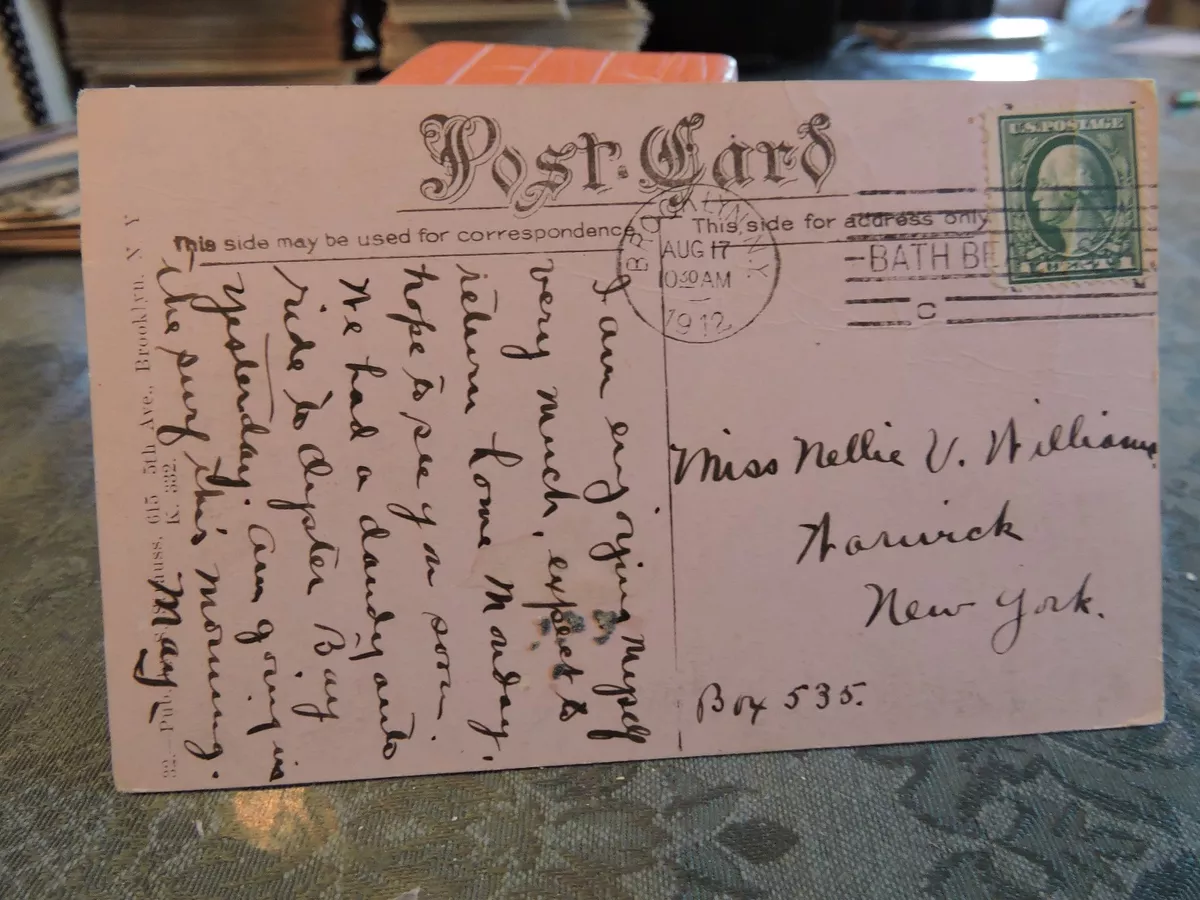 Post Card
This side may be used for correspondence
This side for address only
BROOKLYN, N.Y.
AUG 17
1030 AM
1912
BATH BE
C
U.S. POSTAGE
I am enjoying myself
very much, expect to
return home Monday,
hope to see you soon.
We had a dandy auto
ride to Oyster Bay
Yesterday. Am going in
the surf this morning.
May
Miss Nellie V. Williams
Warwick
New York.
Box 535.
615 5th Ave., Brooklyn, N Y
K. 332.